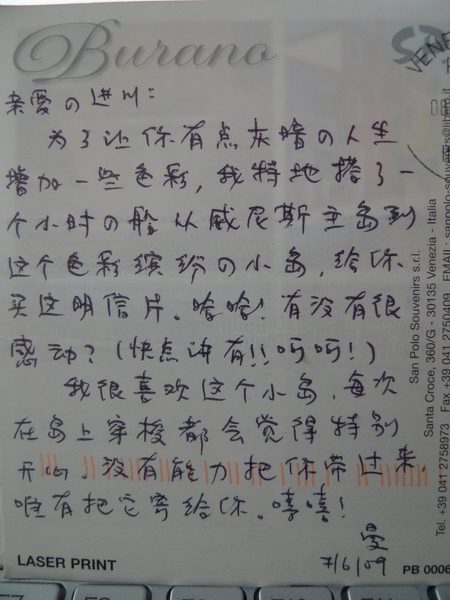 Burano
亲爱の进川:
为了让你有点灰暗の人生
增加一些色彩,我特地搭了一
个小时の船从威尼斯主岛到
这个色彩缤纷の小岛,给你
买这明信片。哈哈!有没有很
感动?(快点讲有!!呵呵!)
我很喜欢这个小岛,每次
在岛上穿梭都会觉得特别
开心。没有能力把你带过来,
唯有把它寄给你。嘻嘻!
曼
7/6/09
LASER PRINT
PB 0006
San Polo Souvenirs s.r.l.
Santa Croce, 360/G - 30135 Venezia - Italia
Tel. +39 041 2758973 Fax +39 041 2750409 EMAIL:
VENE